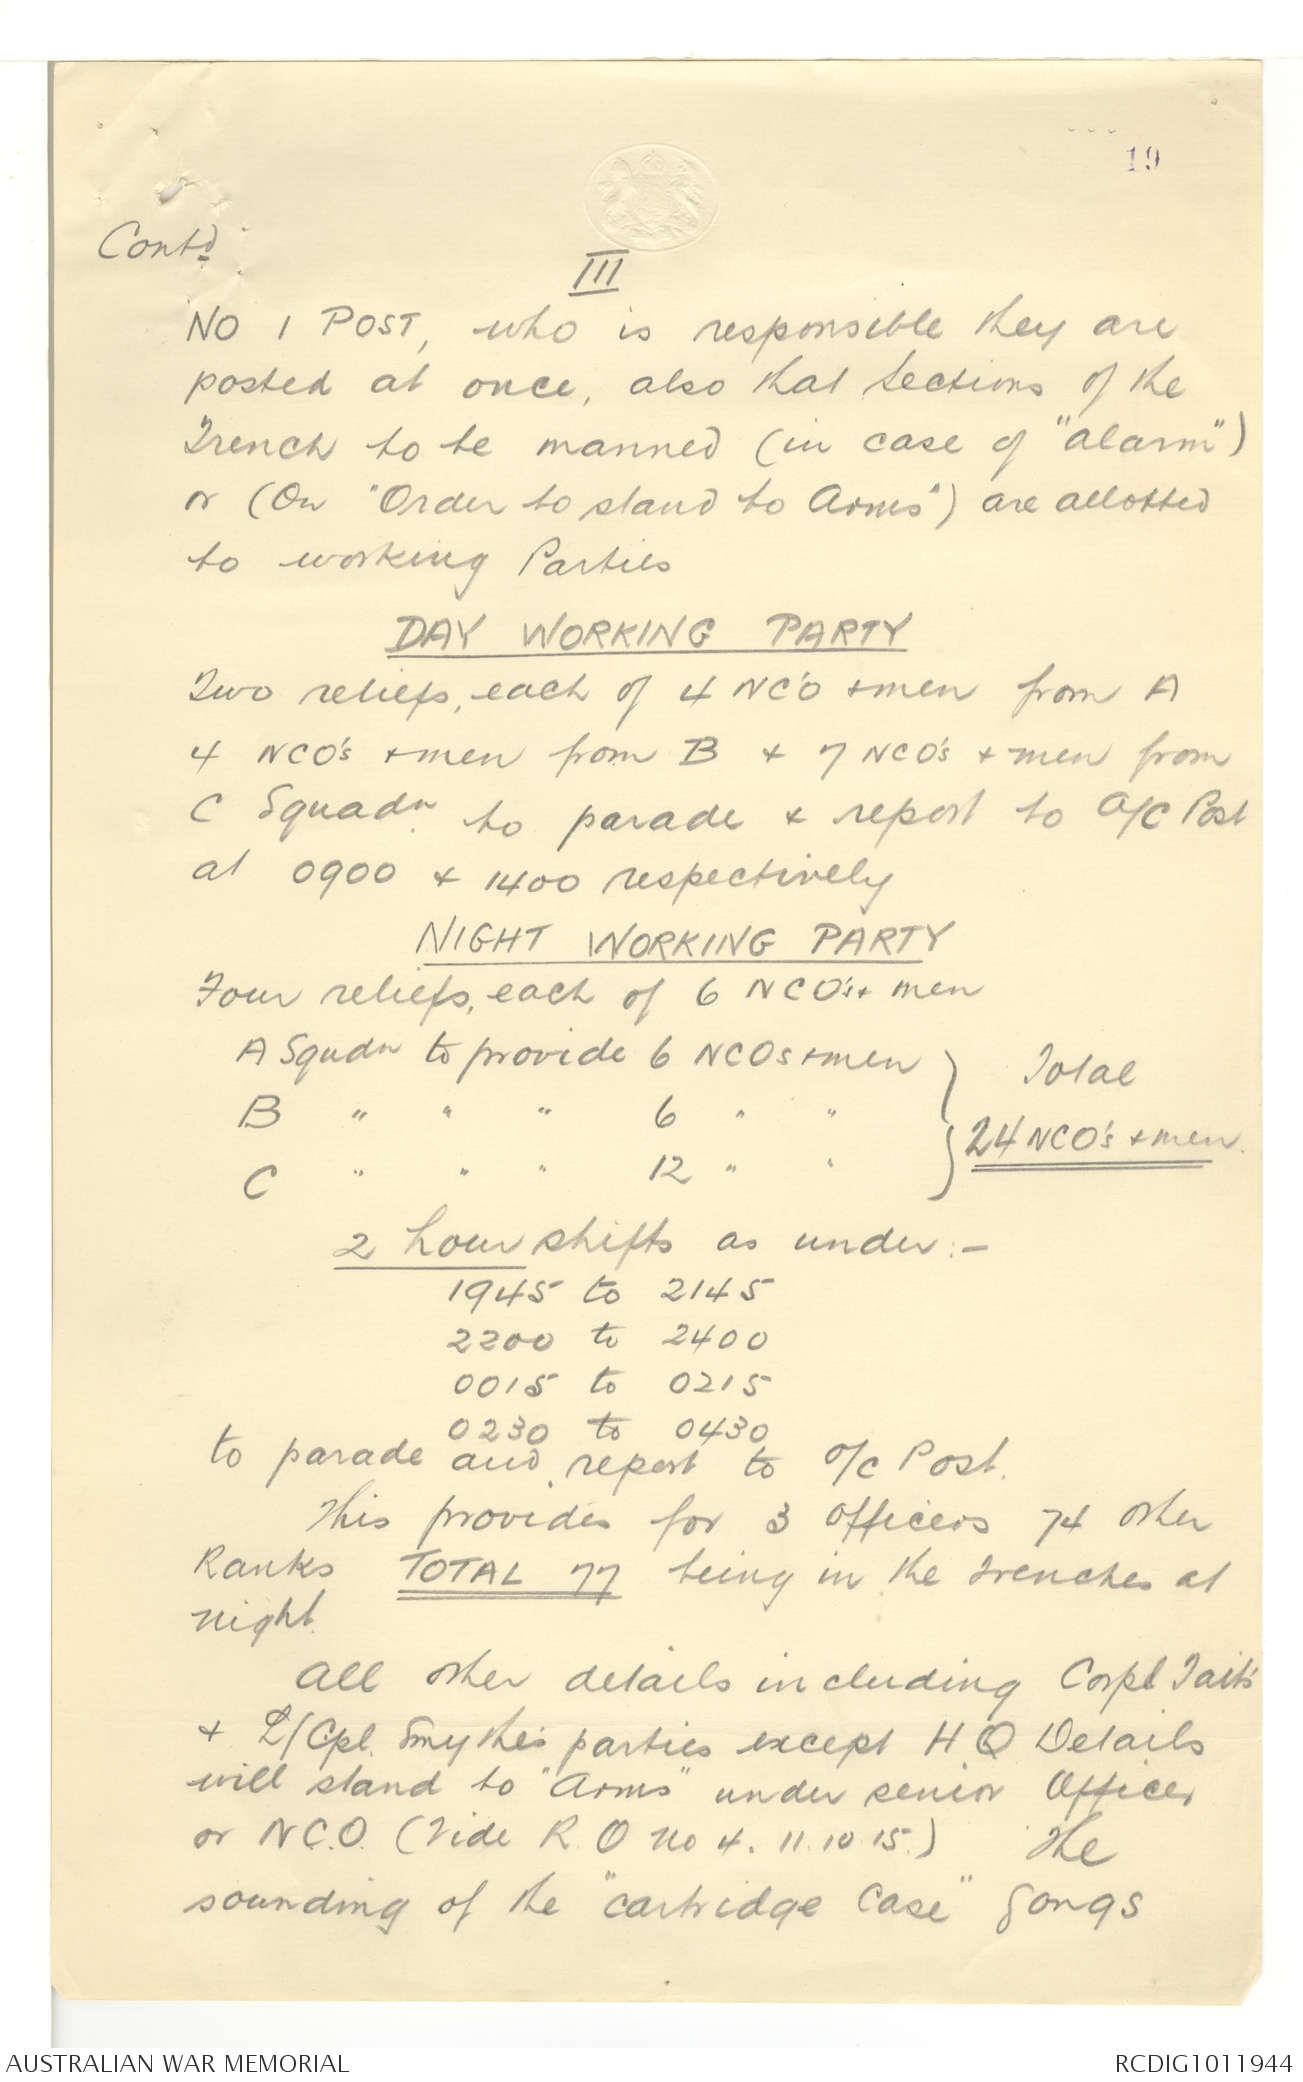 19
Contd
III
NO 1 POST, who is responsible they are
posted at once, also that Sections of the
Trench to be manned (in case of "alarm")
or (On "Order to stand to Arms") are allotted
to working Parties
DAY WORKING PARTY
Two reliefs, each of 4 NC'O + men from A
4 NCO's + men from B + 7 NCO's + men from
C Squadn to parade + report to O/C Post
at 0900 + 1400 respectively
NIGHT WORKING PARTY
Four reliefs, each of 6 NCO's + men
A Squdn to provide 6 NCOs + men } Total
B " " " 6 " "
24 NCO's + men.
C " " " 12 " "
2 hour shifts as under:-
1945 to 2145
2200 to 2400
0015 to 0215
0230 to 0430
to parade and report to O/C Post.
This provides for 3 officers 74 other
Ranks TOTAL 77 being in the trenches at
night.
All other details including Corpl Tait's
+ L/Cpl. Smythe's parties except H.Q Details
will stand to "Arms" under senior Officer
or N.C.O. (Vide R.O No 4. 11.10.15.) The
sounding of the "cartridge Case" Gongs
AUSTRALIAN WAR MEMORIAL
RCDIG1011944